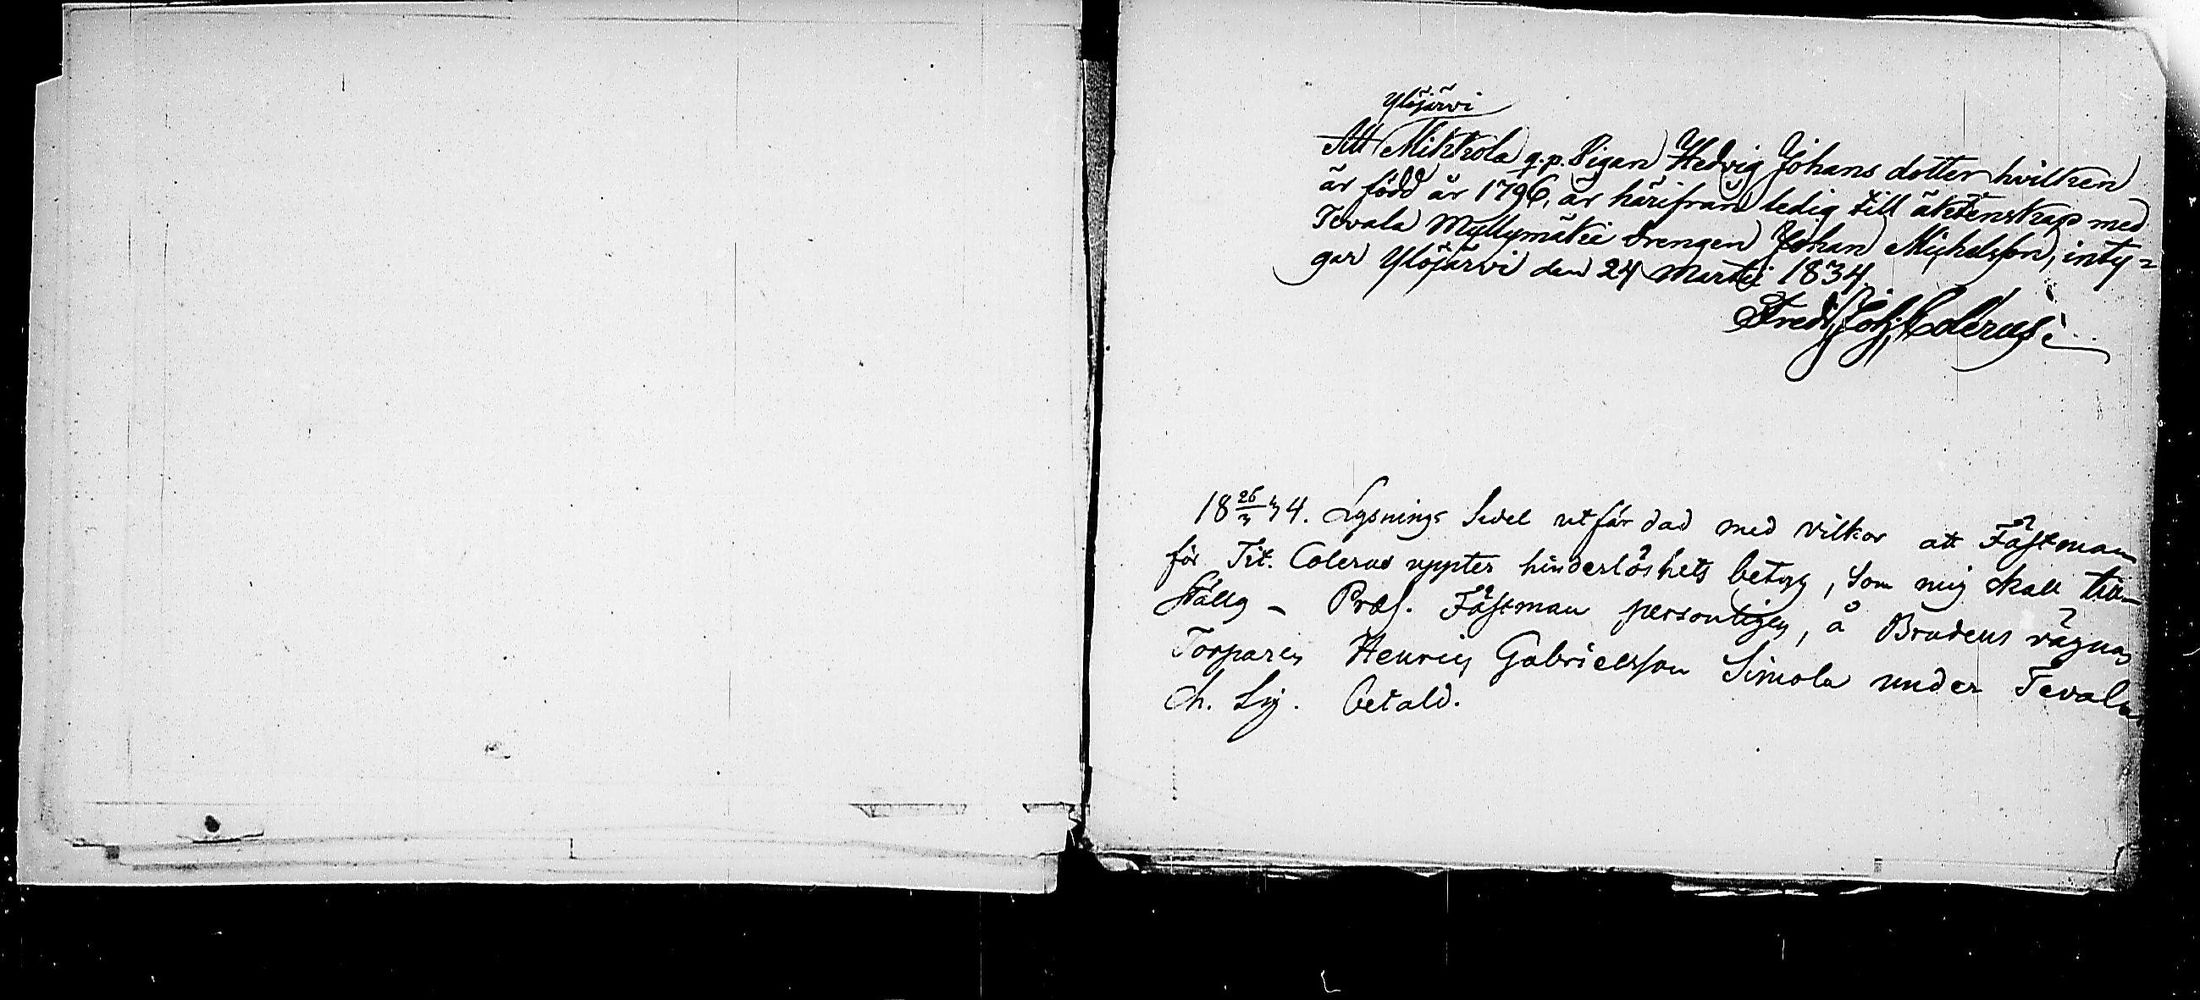 Ylöjärvi
Att Mikkola q.p. Pigan Hedvig Johans dotter hvilken
är född år 1796, är härifrån ledig till äktenskap med
Tevala Myllymäkii drengen Johan Michelsson, inty=
gar Ylöjärvi den 24 Martii 1834.
Fredr. Joh. Colerus
18 26/3 34. Lysnings Sedel utfärdad med vilkor att Fästman
för Tit. Colerus uppter hinderlöshets betyg, som mig skall till-
ställas - Præs. Fästman personligen, å Brudens vägnar
Torparen Henric Gabrielsson Simola under Tevala
Ch. Sig. betald.